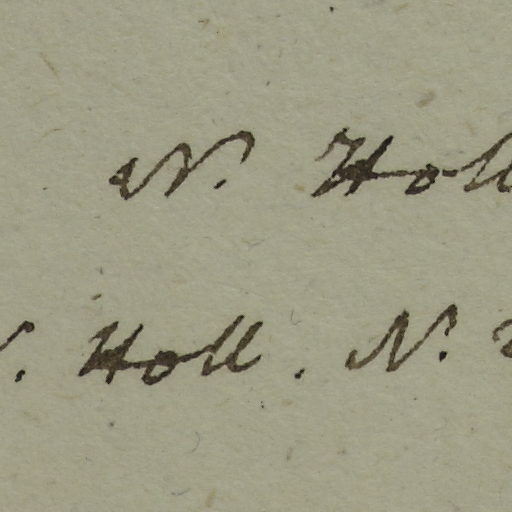 N. Holl
N. Holl. N.